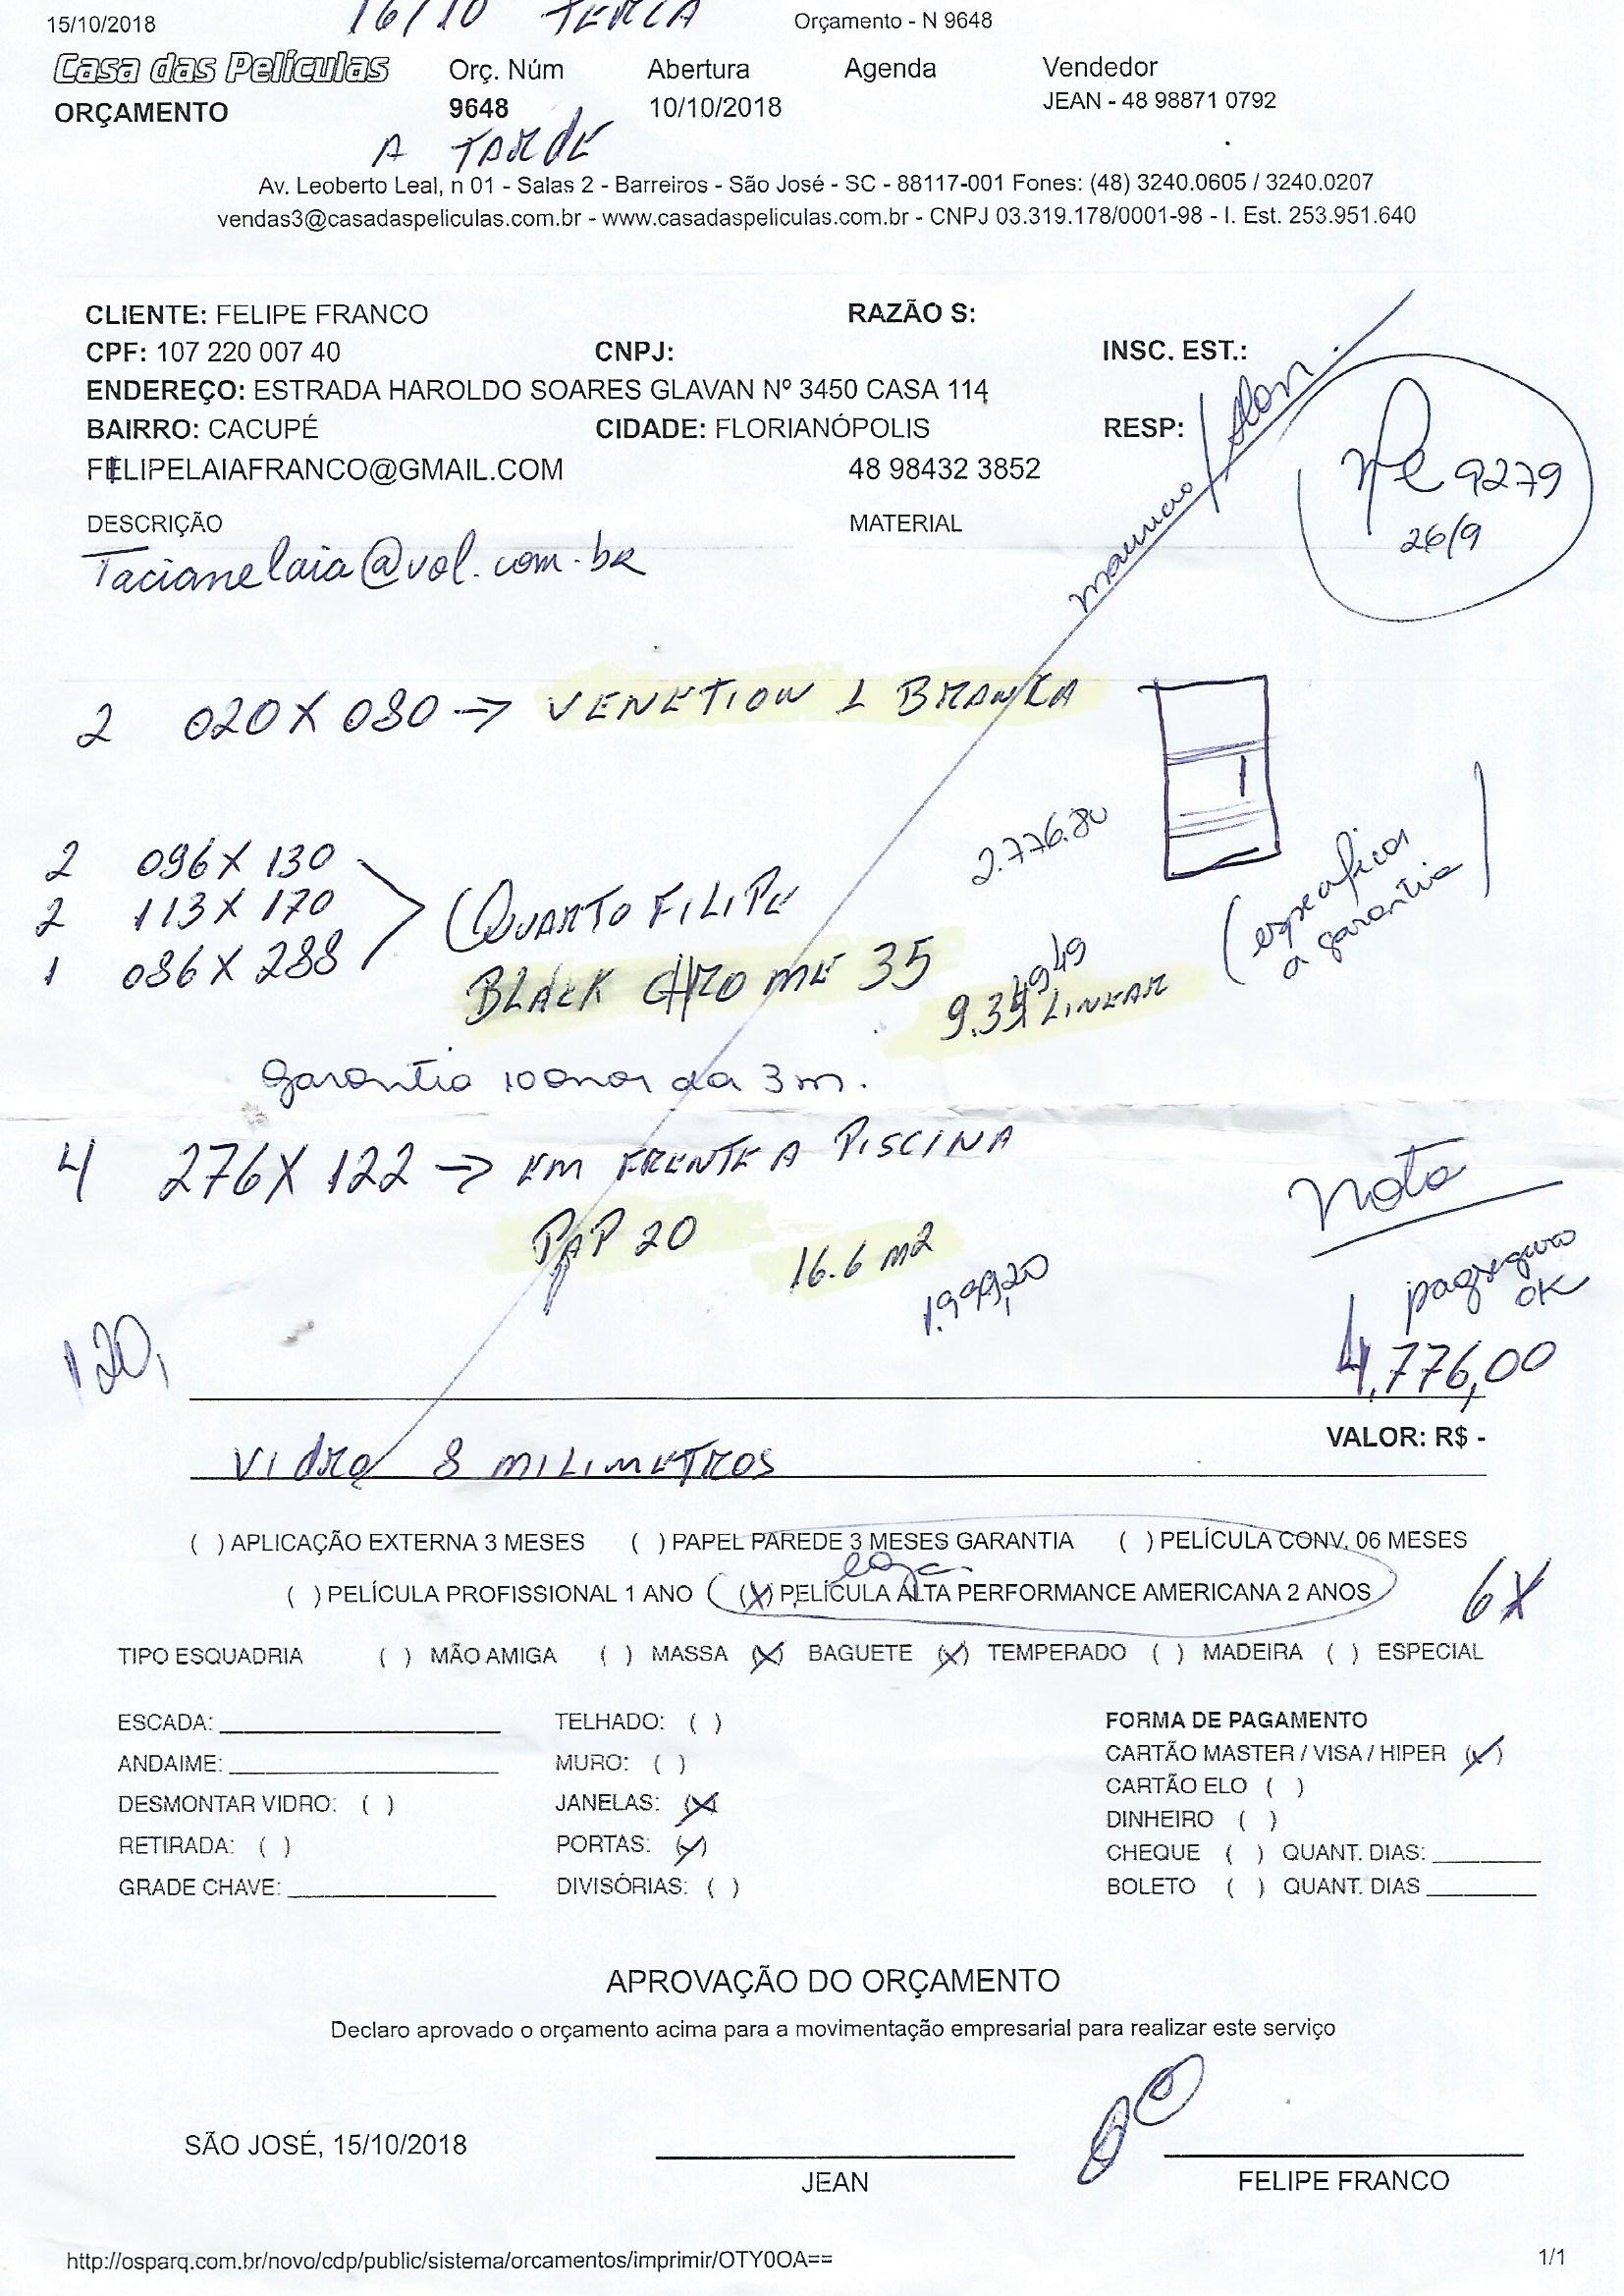 15/10/2018 16/10 TERCA Orçamento - N 9648
Casa das Películas Orç. Núm Abertura Agenda Vendedor
ORÇAMENTO 9648 10/10/2018 JEAN - 48 98871 0792
A TARDE
Av. Leoberto Leal, n 01 - Salas 2 - Barreiros - São José - SC - 88117-001 Fones: (48) 3240.0605 / 3240.0207
vendas3@casadaspeliculas.com.br - www.casadaspeliculas.com.br - CNPJ 03.319.178/0001-98 - I. Est. 253.951.640
CLIENTE: FELIPE FRANCO RAZÃO S:
CPF: 107 220 007 40 CNPJ: INSC. EST.:
ENDEREÇO: ESTRADA HAROLDO SOARES GLAVAN Nº 3450 CASA 114
BAIRRO: CACUPÉ CIDADE: FLORIANÓPOLIS RESP:
FELIPELAIAFRANCO@GMAIL.COM 48 98432 3852
9279
26/9
mauricio /
DESCRIÇÃO MATERIAL
Tacianelaia@uol.com.br
2 020 X 080 → VENETION 1 BRANCA
2.776.80
2 096 X 130
2 113 X 170 (QUARTO FILIPE
1 086 X 288 BLACK CHROME 35
4949
9.34 LINEAR
(especificar
a garantia)
garantia 10 anos da 3m.
4 276 X 122 → EM FRENTE A PISCINA
PpP 20 16.6 m2
1.999,20
Nota
pagseguro
OK
120,
4.776,00
VALOR: R$ -
Vidro 8 MILIMETROS
( ) APLICAÇÃO EXTERNA 3 MESES ( ) PAPEL PAREDE 3 MESES GARANTIA ( ) PELÍCULA CONV. 06 MESES
loja
( ) PELÍCULA PROFISSIONAL 1 ANO (X) PELÍCULA ALTA PERFORMANCE AMERICANA 2 ANOS 6X
TIPO ESQUADRIA ( ) MÃO AMIGA ( ) MASSA (X) BAGUETE (X) TEMPERADO ( ) MADEIRA ( ) ESPECIAL
ESCADA: TELHADO: ( ) FORMA DE PAGAMENTO
ANDAIME: MURO: ( ) CARTÃO MASTER / VISA / HIPER (X)
DESMONTAR VIDRO: ( ) JANELAS: (X) CARTÃO ELO ( )
RETIRADA: ( ) PORTAS: (X) DINHEIRO ( )
GRADE CHAVE: DIVISÓRIAS: ( ) CHEQUE ( ) QUANT. DIAS:
BOLETO ( ) QUANT. DIAS
APROVAÇÃO DO ORÇAMENTO
Declaro aprovado o orçamento acima para a movimentação empresarial para realizar este serviço
SÃO JOSÉ, 15/10/2018
JEAN FELIPE FRANCO
http://osparq.com.br/novo/cdp/public/sistema/orcamentos/imprimir/OTY0OA== 1/1